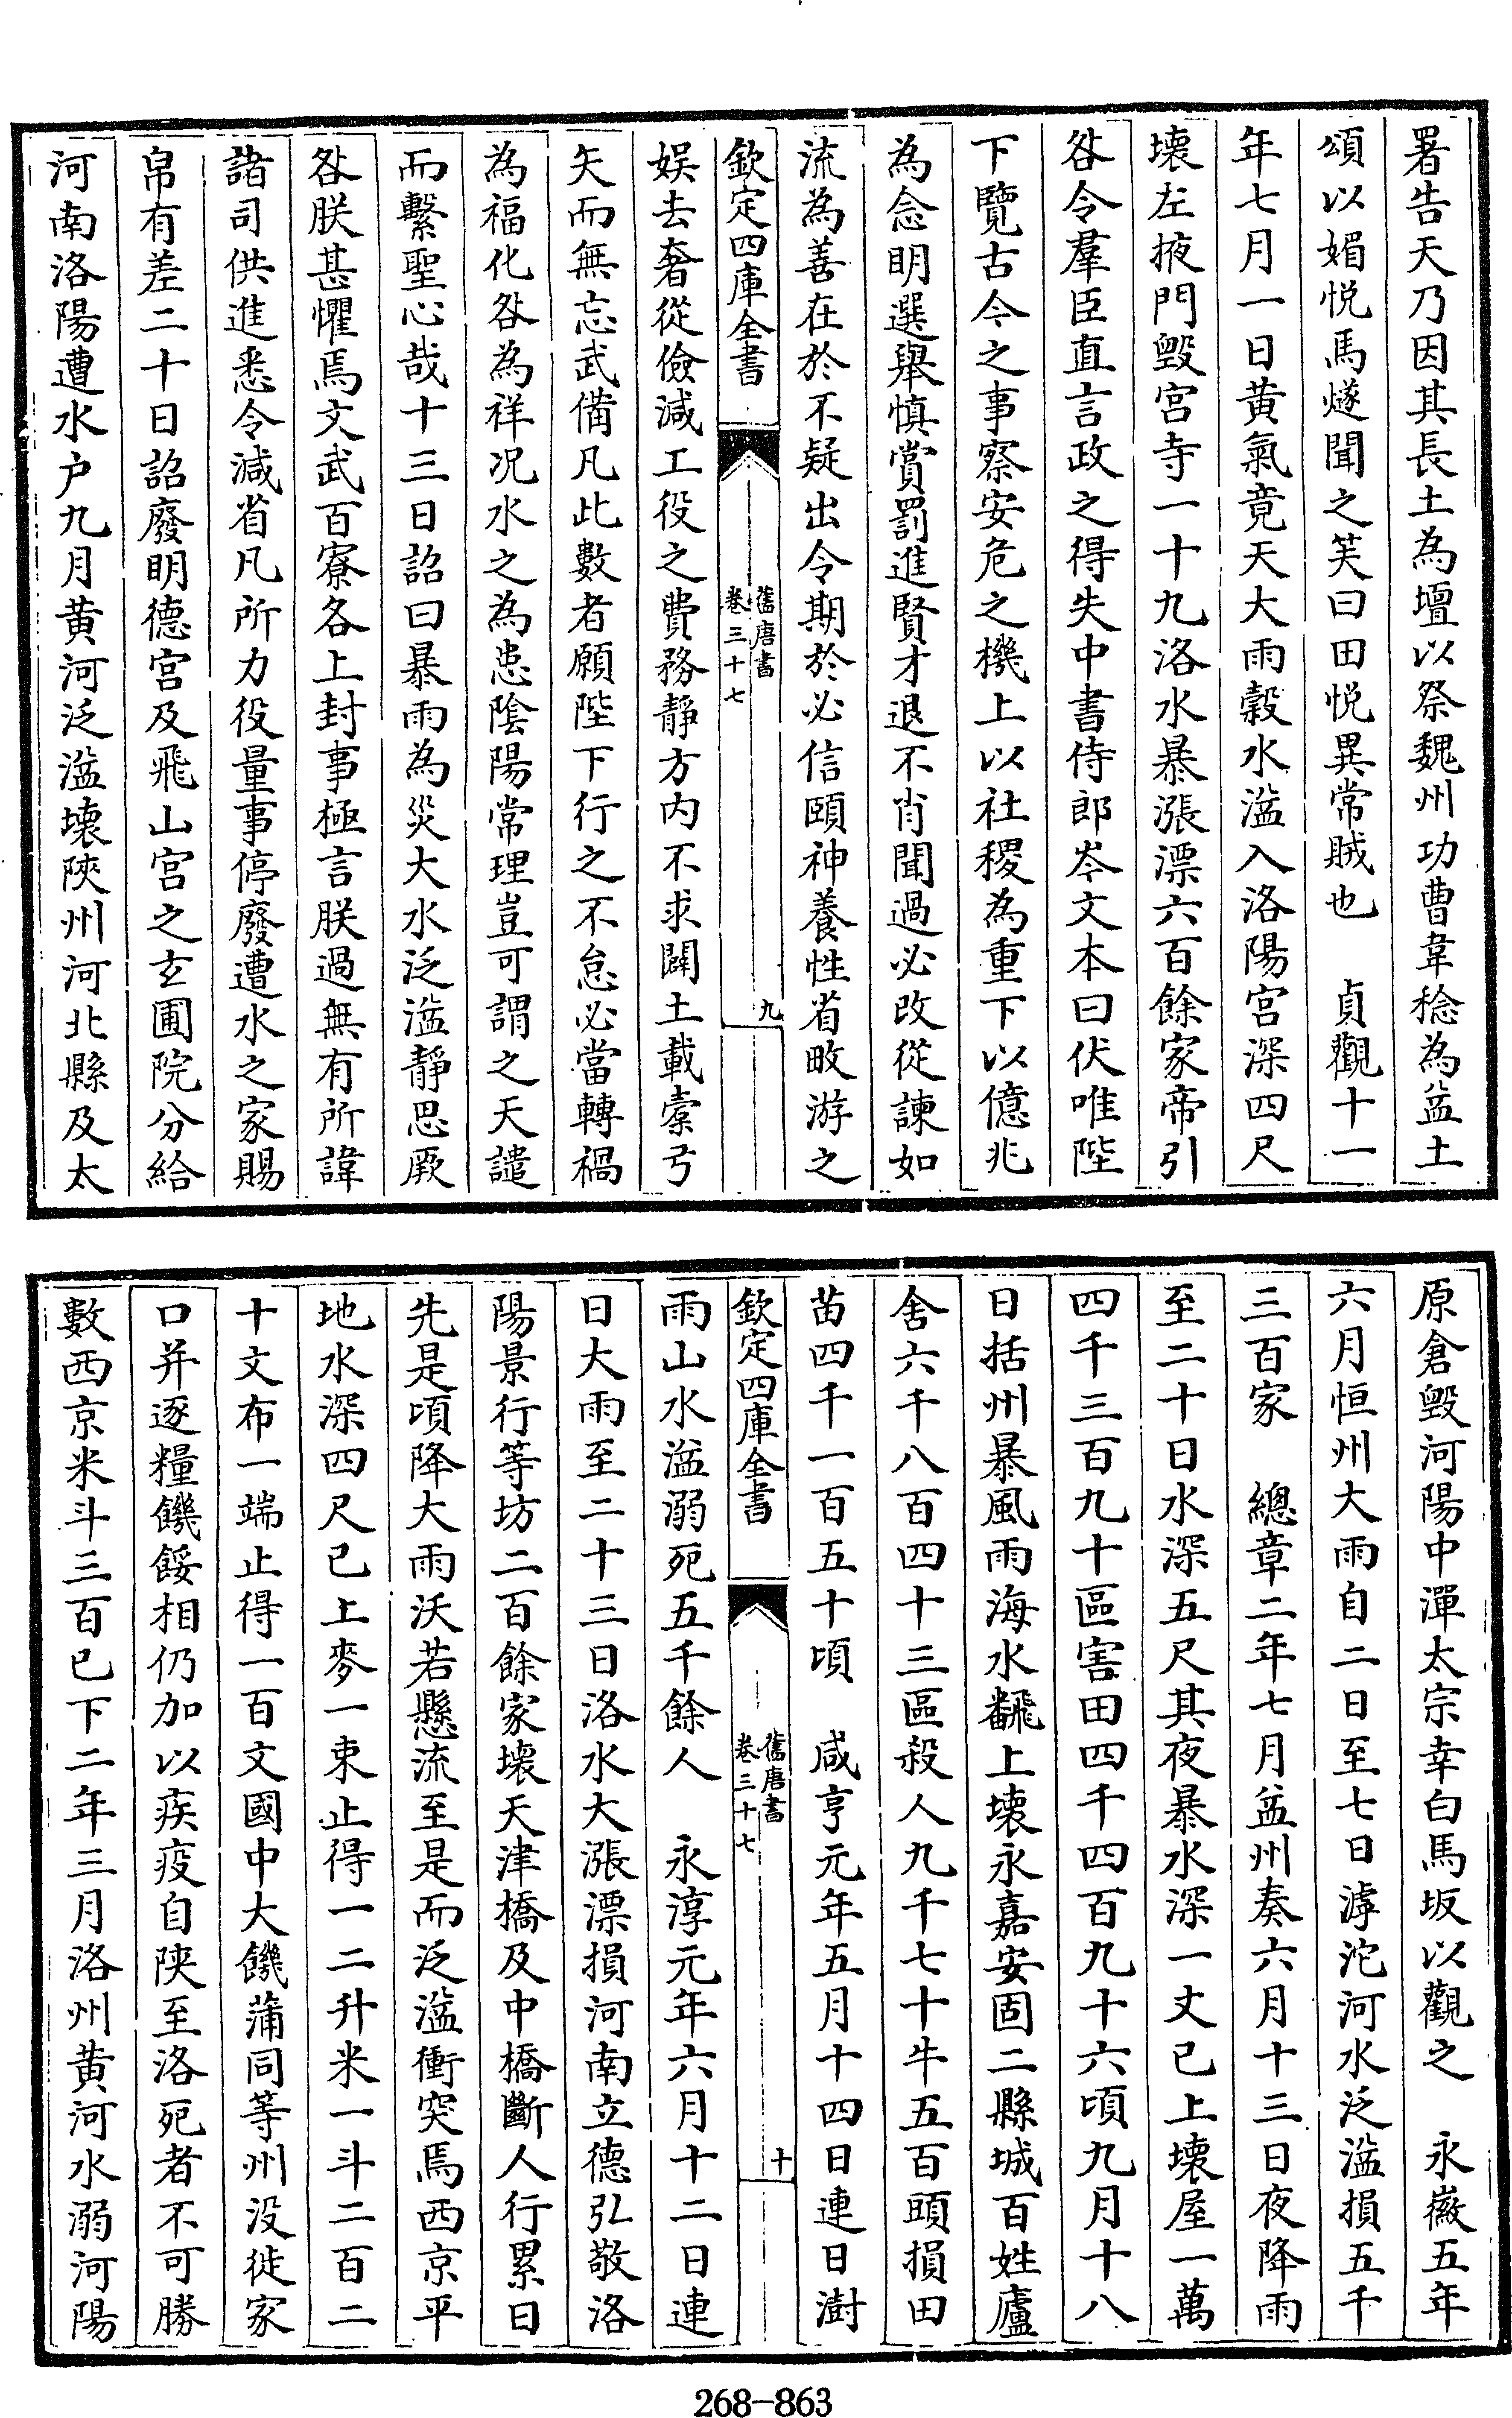 署告天乃因其長土為壇以祭魏州功曹韋稔為益土
頌以媚悦馬燧聞之笑曰田悦異常賊也　貞觀十一
年七月一日黄氣竟天大雨穀水溢入洛陽宫深四尺
壞左掖門毁宫寺一十九洛水暴漲漂六百餘家帝引
咎令羣臣直言政之得失中書侍郎岑文本曰伏唯陛
下覽古今之事察安危之機上以社稷為重下以億兆
為念明選舉慎賞罰進賢才退不肖聞過必改從諫如
流為善在於不疑出令期於必信頤神養性省畋游之
欽定四庫全書
舊唐書
卷三十七
九
娱去奢從儉減工役之費務静方内不求闢土載櫜弓
矢而無忘武備凡此數者願陛下行之不怠必當轉禍
為福化咎為祥况水之為患陰陽常理豈可謂之天譴
而繫聖心哉十三日詔曰暴雨為災大水泛溢静思厥
咎朕甚懼焉文武百寮各上封事極言朕過無有所諱
諸司供進悉令減省凡所力役量事停廢遭水之家賜
帛有差二十日詔廢明德宫及飛山宫之玄圃院分給
河南洛陽遭水户九月黄河泛溢壞陜州河北縣及太
原倉毁河陽中潬太宗幸白馬坂以觀之　永徽五年
六月恒州大雨自二日至七日滹沱河水泛溢損五千
三百家　總章二年七月益州奏六月十三日夜降雨
至二十日水深五尺其夜暴水深一丈已上壞屋一萬
四千三百九十區害田四千四百九十六頃九月十八
日括州暴風雨海水飜上壞永嘉安固二縣城百姓廬
舍六千八百四十三區殺人九千七十牛五百頭損田
苗四千一百五十頃　咸亨元年五月十四日連日澍
欽定四庫全書
舊唐書
卷三十七
十
雨山水溢溺死五千餘人　永淳元年六月十二日連
日大雨至二十三日洛水大漲漂損河南立德弘敬洛
陽景行等坊二百餘家壞天津橋及中橋斷人行累日
先是頃降大雨沃若懸流至是而泛溢衝突焉西京平
地水深四尺已上麥一束止得一二升米一斗二百二
十文布一端止得一百文國中大饑蒲同等州没徙家
口并逐糧饑餒相仍加以疾疫自陜至洛死者不可勝
數西京米斗三百已下二年三月洛州黄河水溺河陽
268-863